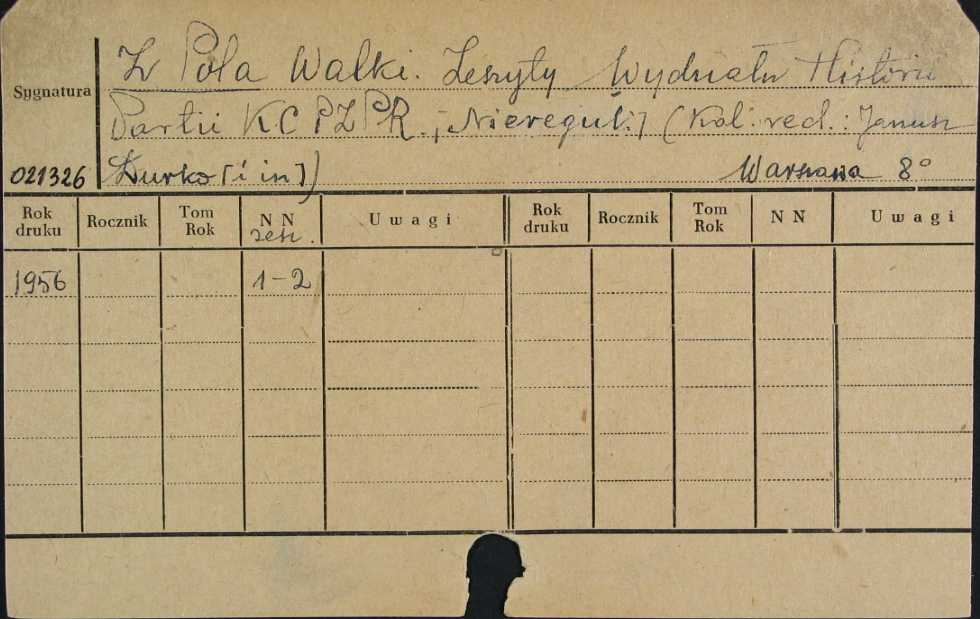 Z Pola Walki. Zeszyty Wydziału Historii
Sygnatura
Partii KC PZPR. [Nieregul.] (Kol. red.: Janusz
021326 Durko [i in]) Warszawa 8°
Rok druku Rocznik Tom Rok N N zesz. Uwagi Rok druku Rocznik Tom Rok N N Uwagi
1956 1-2